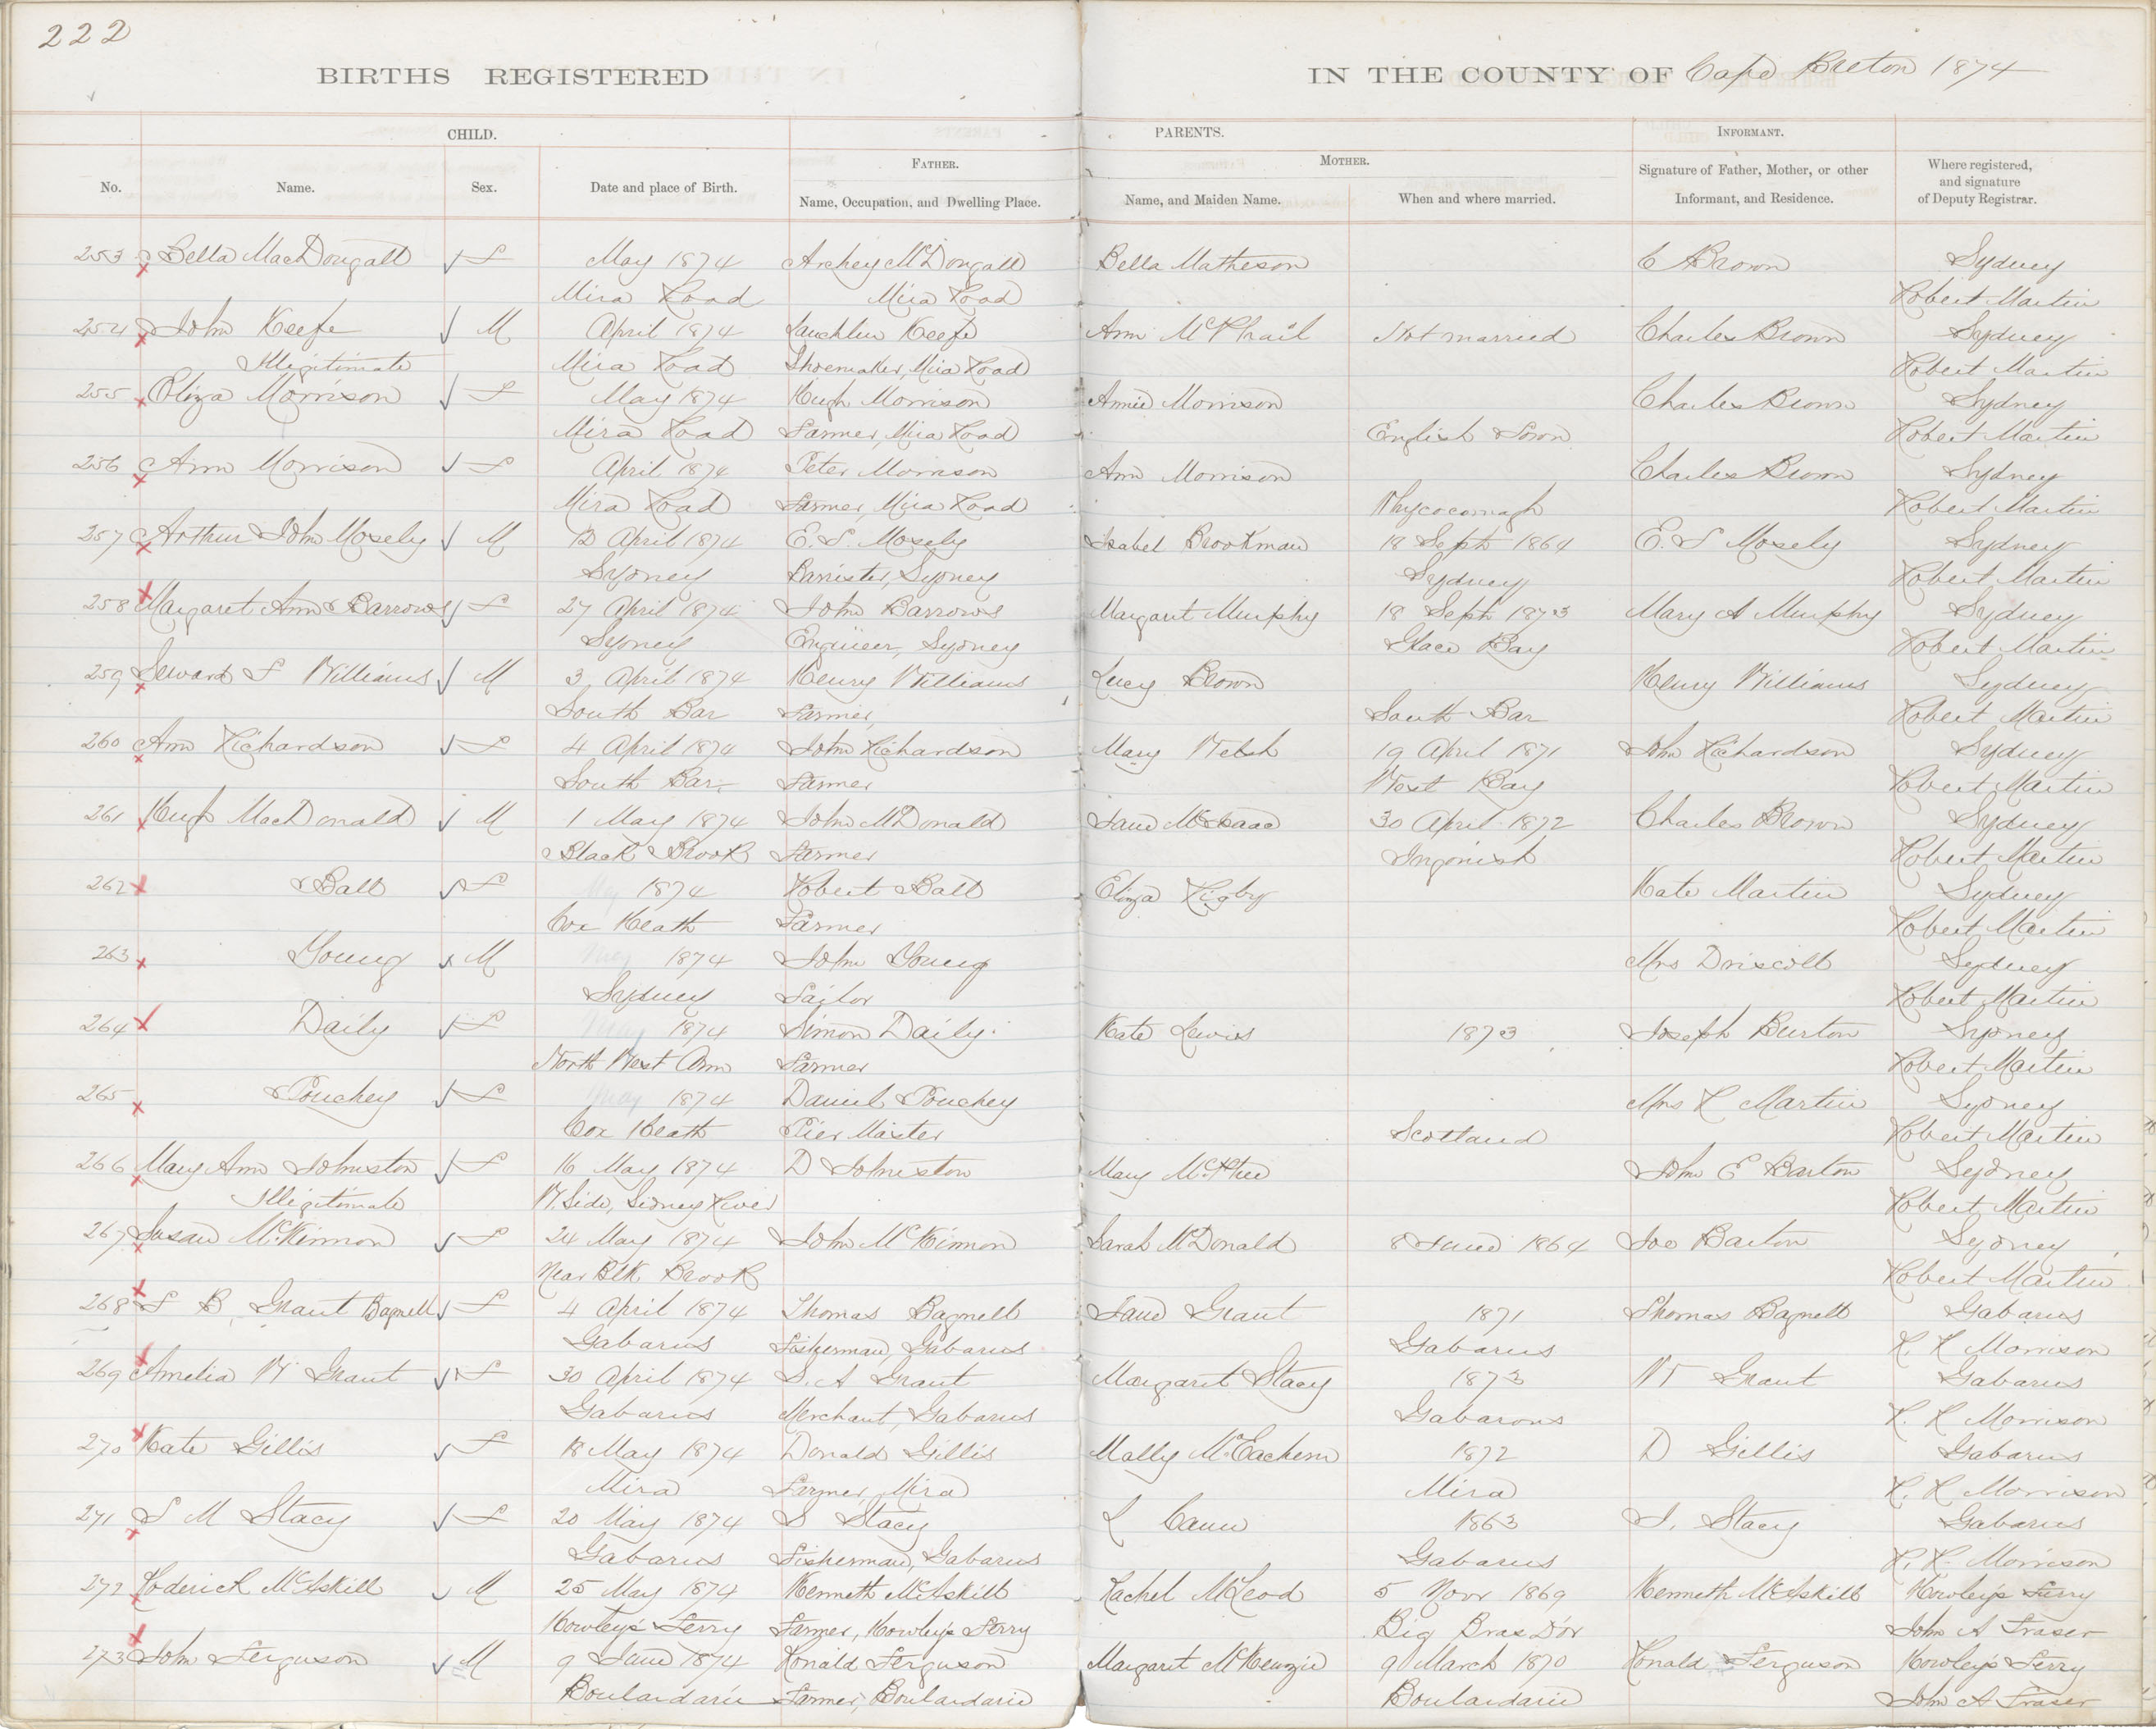 222
BIRTHS REGISTERED IN THE COUNTY OF Cape Breton 1874
CHILD. PARENTS. INFORMANT.
FATHER. MOTHER.
No. Name. Sex. Date and place of Birth. Name, Occupation, and Dwelling Place. Name, and Maiden Name. When and where married. Signature of Father, Mother, or other Informant, and Residence. Where registered, and signature of Deputy Registrar.
253 Bella MacDougall F May 1874 Archey McDougall Bella Matheson C Brown Sydney
Mira Road Mira Road Robert Martin
254 John Keefe M April 1874 Lauchlin Keefe Ann McPhail Not married Charles Brown Sydney
Illegitimate Mira Road Shoemaker, Mira Road Robert Martin
255 Eliza Morrison F May 1874 Hugh Morrison Annie Morrison Charles Brown Sydney
Mira Road Farmer, Mira Road English Town Robert Martin
256 Ann Morrison F April 1874 Peter Morrison Ann Morrison Charles Brown Sydney
Mira Road Farmer, Mira Road Whycocomagh Robert Martin
257 Arthur John Mosely M 12 April 1874 E. S. Mosely Isabel Brookman 18 Sept 1864 E. S Mosely Sydney
Sydney Barrister, Sydney Sydney Robert Martin
258 Margaret Ann Barrows F 27 April 1874 John Barrows Margaret Murphy 18 Sept 1873 Mary A Murphy Sydney
Sydney Engineer, Sydney Glace Bay Robert Martin
259 Seward F Williams M 3 April 1874 Henry Williams Lucy Brown Henry Williams Sydney
South Bar Farmer, South Bar Robert Martin
260 Ann Richardson F 4 April 1874 John Richardson Mary Welsh 19 April 1871 John Richardson Sydney
South Bar Farmer West Bay Robert Martin
261 Hugh MacDonald M 1 May 1874 John McDonald Jane McIsaac 30 April 1872 Charles Brown Sydney
Black Brook Farmer Ingonish Robert Martin
262 Ball F May 1874 Robert Ball Eliza Rigby Kate Martin Sydney
Cox Heath Farmer Robert Martin
263 Young M May 1874 John Young Mrs Driscoll Sydney
Sydney Sailor Robert Martin
264 Daily F May 1874 Simon Daily Kate Lewis 1873 Joseph Burton Sydney
North West Arm Farmer Robert Martin
265 Pouchey F May 1874 Daniel Pouchey Mrs R Martin Sydney
Cox Heath Pier Master Scotland Robert Martin
266 Mary Ann Johnston F 16 May 1874 D Johnston Mary McPhee John E Barton Sydney
Illegitimate W. Side, Sidney River Robert Martin
267 Susan McKinnon F 24 May 1874 John McKinnon Sarah McDonald 8 June 1864 Joe Barton Sydney
Near Blk Brook Robert Martin
268 F B. Grant Bagnell F 4 April 1874 Thomas Bagnell Jane Grant 1871 Thomas Bagnell Gabarus
Gabarus Fisherman, Gabarus Gabarus R. R Morrison
269 Amelia W Grant F 30 April 1874 S. A Grant Margaret Stacy 1873 W Grant Gabarus
Gabarus Merchant, Gabarus Gabarous R. R Morrison
270 Kate Gillis F 18 May 1874 Donald Gillis Mally McEachern 1872 D Gillis Gabarus
Mira Farmer, Mira Mira R. R Morrison
271 S M Stacy F 20 May 1874 S Stacy L Cann 1863 S. Stacy Gabarus
Gabarus Fisherman, Gabarus Gabarus R. R. Morrison
272 Roderick McAskill M 25 May 1874 Kenneth McAskill Rachel McLeod 5 Novr 1869 Kenneth McAskill Kowley's Ferry
Kowley's Ferry Farmer, Kowley's Ferry Big Bras D'or John A Fraser
273 John Ferguson M 9 June 1874 Ronald Ferguson Margaret McKenzie 9 March 1870 Ronald Ferguson Kowley's Ferry
Boulardarie Farmer, Boulardarie Boulardarie John A Fraser